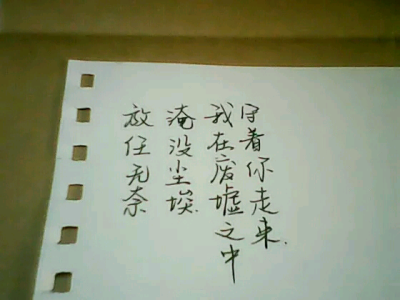 放任无奈
淹没尘埃.
我在废墟之中
守着你走来.